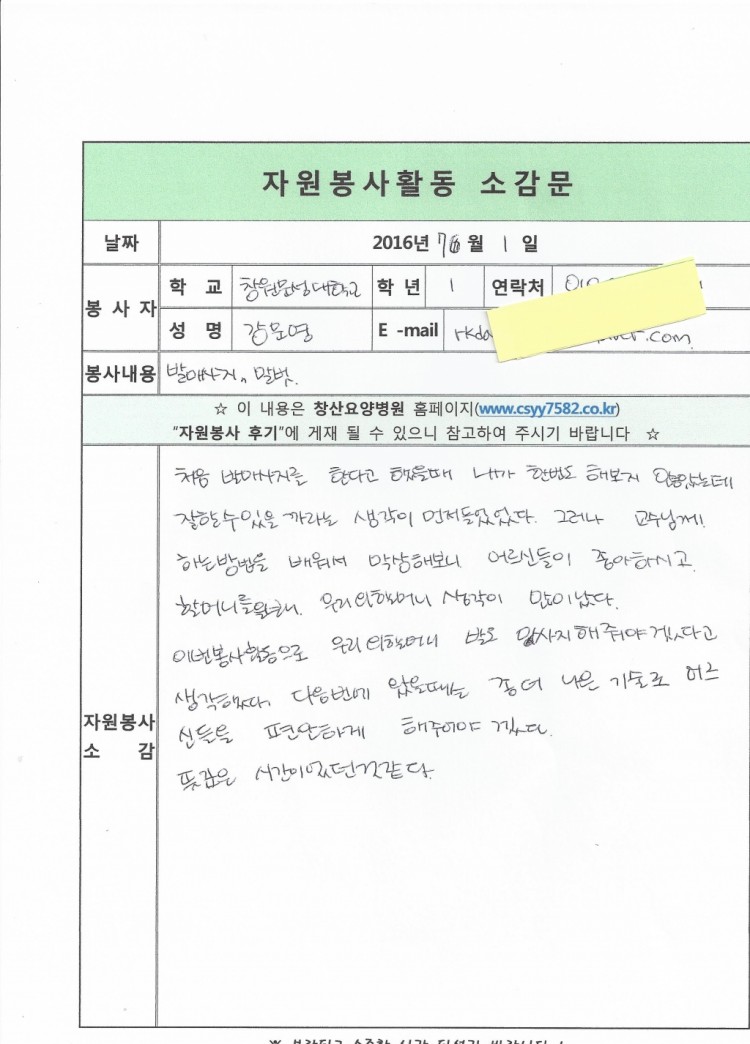 자원봉사활동 소감문
날짜 2016년 7월 1 일
봉사자 학 교 창원문성대학교 학 년 1 연락처 010
성 명 강모영 E -mail rkd .com
봉사내용 발마사지, 말벗.
☆ 이 내용은 창산요양병원 홈페이지(www.csyy7582.co.kr)
"자원봉사 후기"에 게재 될 수 있으니 참고하여 주시기 바랍니다 ☆
자원봉사 소 감
처음 발마사지를 한다고 했을때 내가 한번도 해보지 않았는데
잘할수있을 까라는 생각이 먼저들었었다. 그러나 교수님께
하는방법을 배워서 막상해보니 어르신들이 좋아하시고
할머니를 우리외할머니 생각이 많이났다.
이번봉사활동으로 우리외할머니 발도 마사지해줘야겠다고
생각했다. 다음번에 왔을때는 좀더 나은 기술로 어르
신들을 편안하게 해주어야 겠다.
뜻깊은 시간이었던것같다.